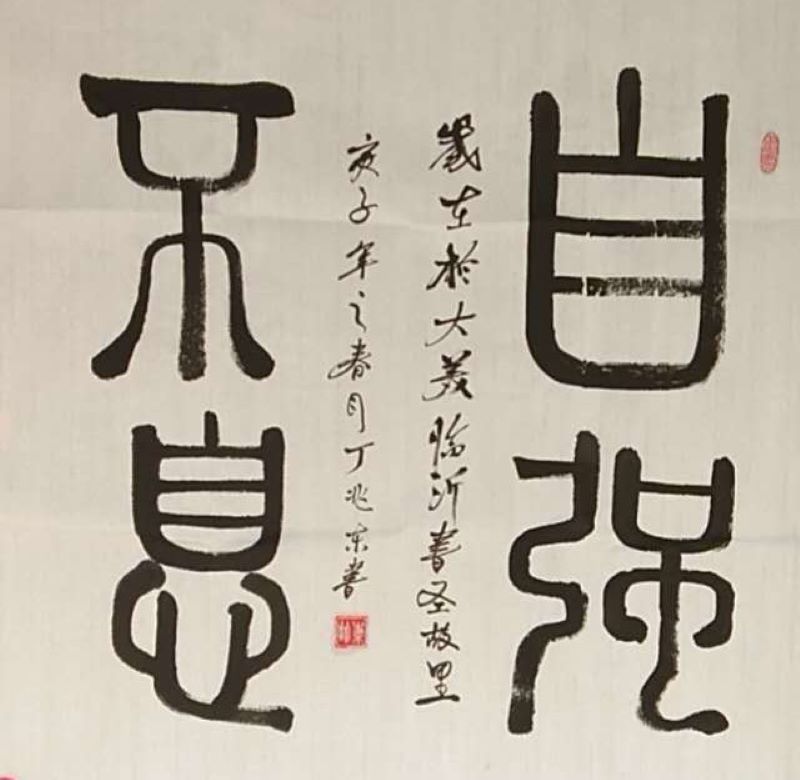 自强
不息
歲在於大美临沂書圣故里
庚子年之春月丁兆書